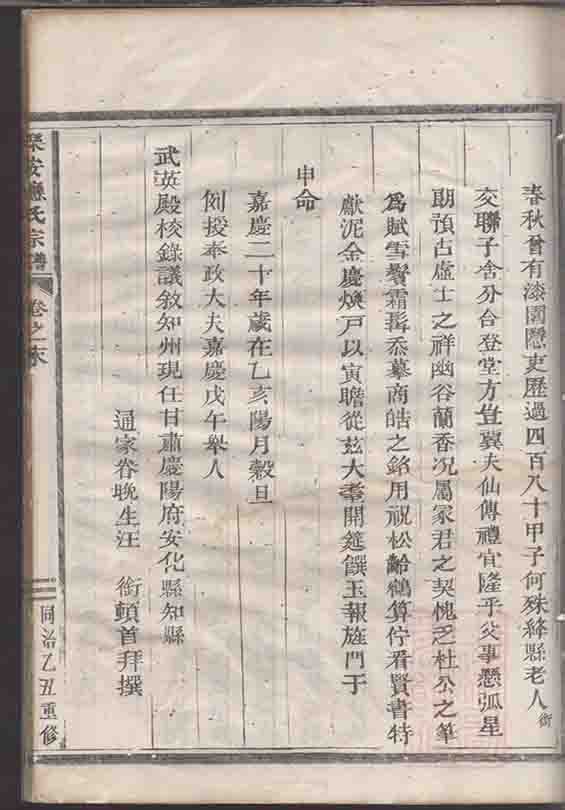 春秋曾有漆園隱吏歷過四百八十甲子何殊絳縣老人 銜
交聯子舍分合登堂方豈冀夫仙傳禮宜隆乎父事懸弧星
朗預占處士之祥幽谷蘭香況屬家君之契愧乏杜公之筆
爲賦雪鬢霜髯忝慕商皓之銘用祝松齡鶴算佇看賢書特
獻泥金慶煥戸以寅瞻從兹大耋開筵饌玉報旌門于
申命
嘉慶二十年歲在乙亥陽月穀旦
例授奉政大夫嘉慶戊午舉人
武英殿校錄議敘知州現任甘肅慶陽府安化縣知縣
通家眷晚生汪 銜頓首拜撰
安 氏宗譜 卷之末
同治乙丑重修